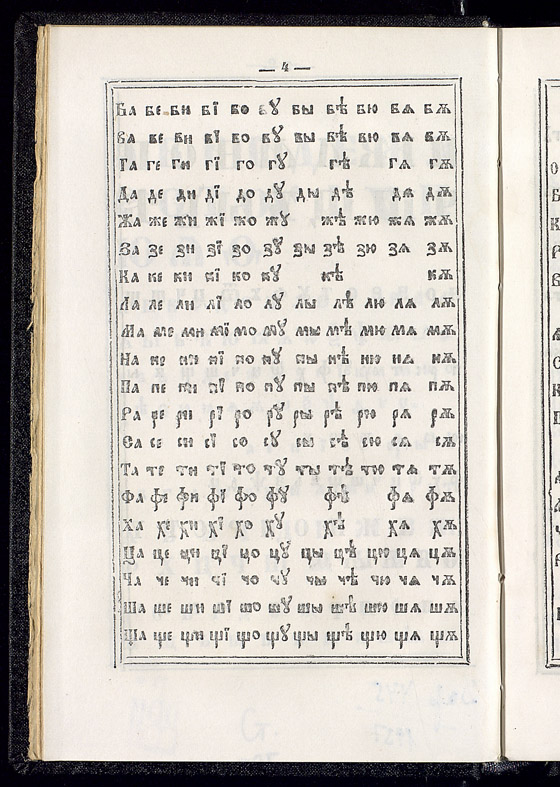 — 4 —
Ба бе би бї бо бꙋ бы бѣ бю бѧ бѫ
Ва ве ви вї во вꙋ вы вѣ вю вѧ вѫ
Га ге ги гї го гꙋ гѣ гѧ гѫ
Да де ди дї до дꙋ ды дѣ дѧ дѫ
Жа же жи жї жо жꙋ жѣ жю жѧ жѫ
За зе зи зї зо зꙋ зы зѣ зю зѧ зѫ
Ка ке ки кї ко кꙋ кѣ кѫ
Ла ле ли лї ло лꙋ лы лѣ лю лѧ лѫ
Ма ме ми мї мо мꙋ мы мѣ мю мѧ мѫ
На не ни нї но нꙋ ны нѣ ню нѧ нѫ
Па пе пи пї по пꙋ пы пѣ пю пѧ пѫ
Ра ре ри рї ро рꙋ ры рѣ рю рѧ рѫ
Са се си сї со сꙋ сы сѣ сю сѧ сѫ
Та те ти тї то тꙋ ты тѣ тю тѧ тѫ
Фа фе фи фї фо фꙋ фѣ фѧ фѫ
Ха хе хи хї хо хꙋ хѣ хѧ хѫ
Ца це ци цї цо цꙋ цы цѣ цю цѧ цѫ
Ча че чи чї чо чꙋ чы чѣ чю чѧ чѫ
Ша ше ши шї шо шꙋ шы шѣ шю шѧ шѫ
Ща ще щи щї що щꙋ щы щѣ щю щѧ щѫ